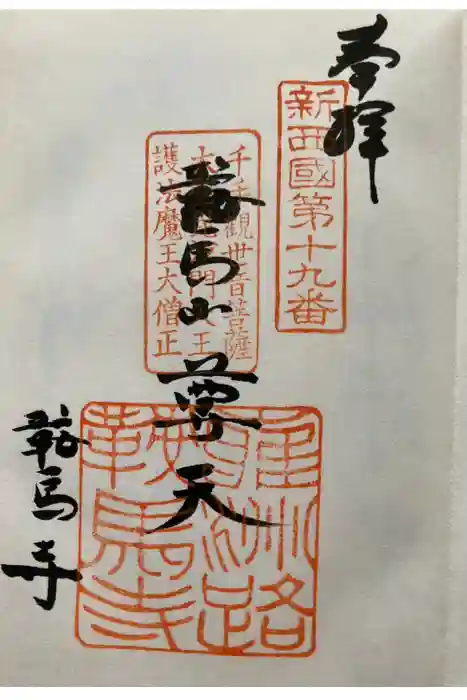 奉拝
新西國第十九番
千手觀世音菩薩
大毘沙門天王
護法魔王大僧正
鞍馬山
尊天
雍州路
鞍馬寺
鞍馬寺